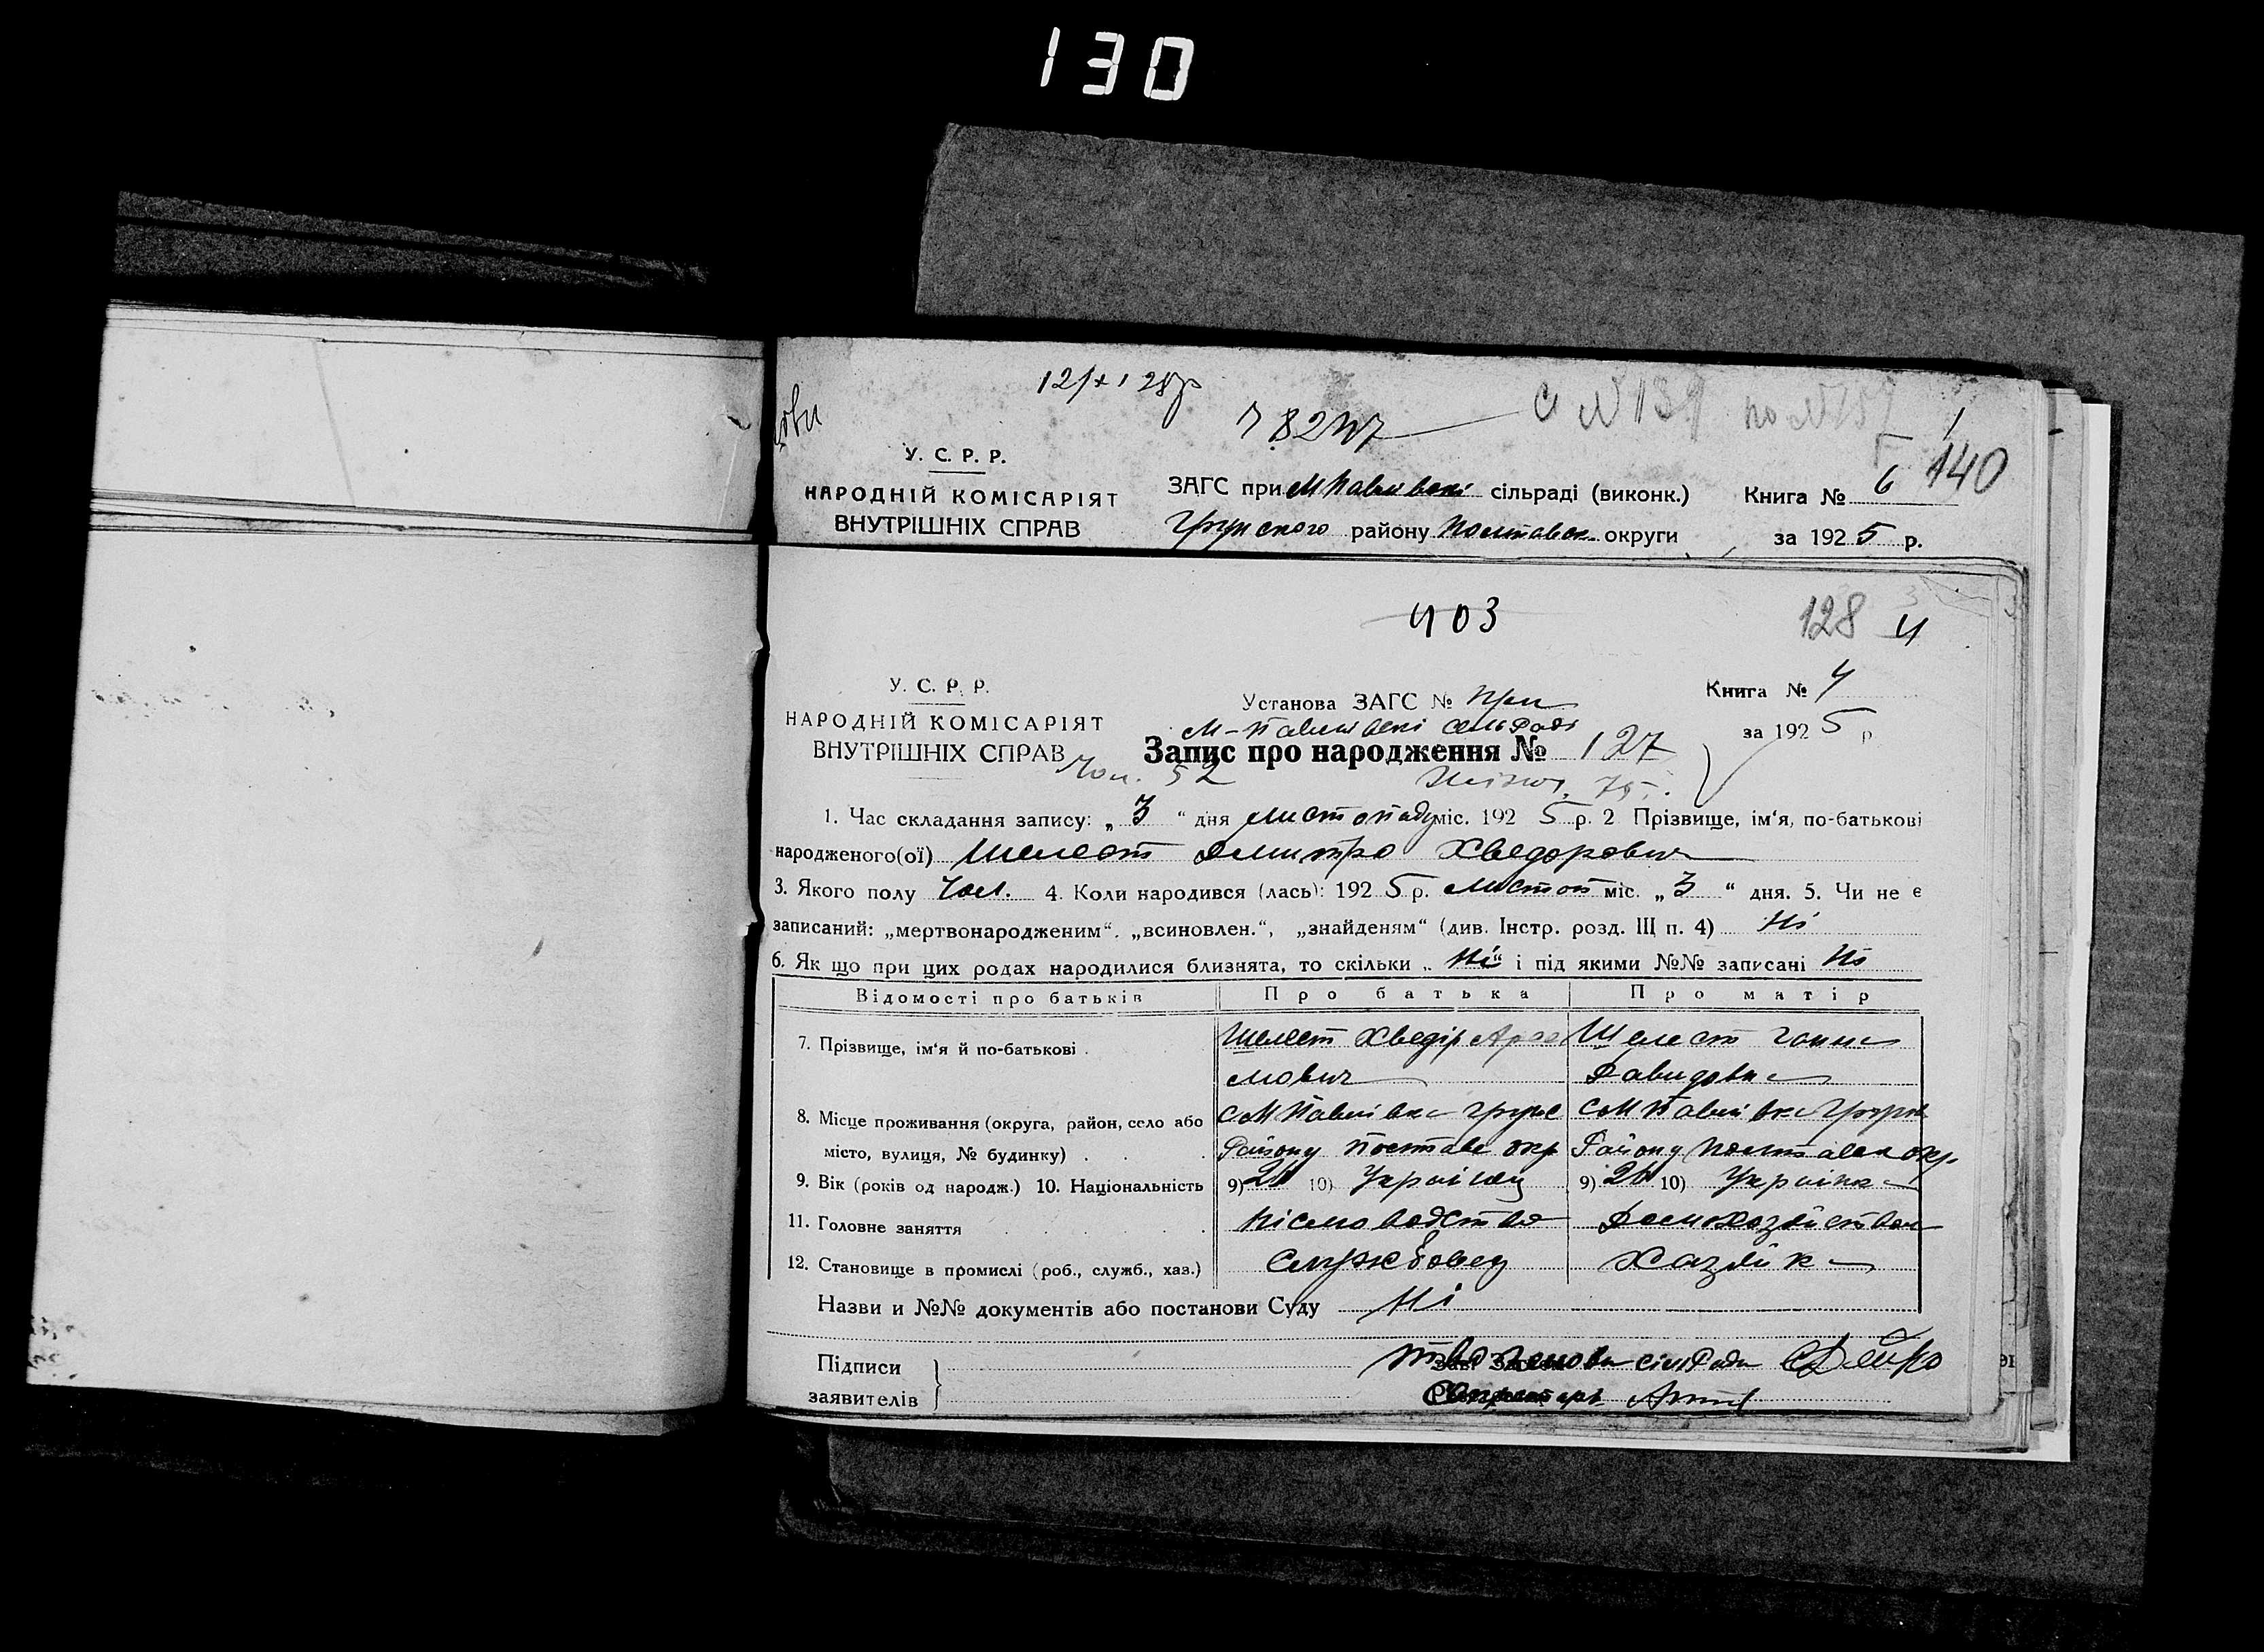 130
782
С №139 по №157
140
У. С. Р. Р.
НАРОДНІЙ КОМІСАРІЯТ
ВНУТРІШНІХ СПРАВ
ЗАГС при М Павлівскі сільраді (виконк.)
Грунского району Полтавск. округи
Книга № 6
за 1925 р.
403
128 4
У. С. Р. Р.
НАРОДНІЙ КОМІСАРІЯТ
ВНУТРІШНІХ СПРАВ
Установа ЗАГС № При
М-Павлівскі сельраді
Книга № 4
за 1925 р
Запис про народження № 127
Чол. 52 Жіноч. 75
1. Час складання запису: „ 3 “ дня листопаду міс. 1925 р. 2 Прізвище, ім‘я, по-батькові
народженого(ої) Шелест Дмитро Хведорович
3. Якого полу Чол. 4. Коли народився (лась): 1925 р. Листоп міс. „ 3 “ дня. 5. Чи не є
записаний: „мертвонародженим“. „всиновлен.“, „знайденям“ (див. Інстр. розд. ІІІ п. 4) Ні
6. Як що при цих родах народилися близнята, то скільки „ Ні “ і під якими №№ записані Ні
Відомості про батьків Про батька Про матір
7. Прізвище, ім‘я й по-батькові . Шелест Хведір Шелест Ганна
мович Давидовна
8. Місце проживання (округа, район, село або С М Павлівка Грунс С М Павлівка Грунс
місто, вулиця, № будинку) . . . Району Полтавс окр Району Полтавск окр.
9. Вік (років од народж.) 10. Національність 9) 26 10) Українец 9) 26 10) Українка
11. Головне заняття . . . . . Пісмоводство Домохозяйством
12. Становище в промислі (роб., служб., хаз.) Службовец Хазяйка
Назви и №№ документів або постанови Суду Ні
Підписи
заявителів
сілРади
Секретарь